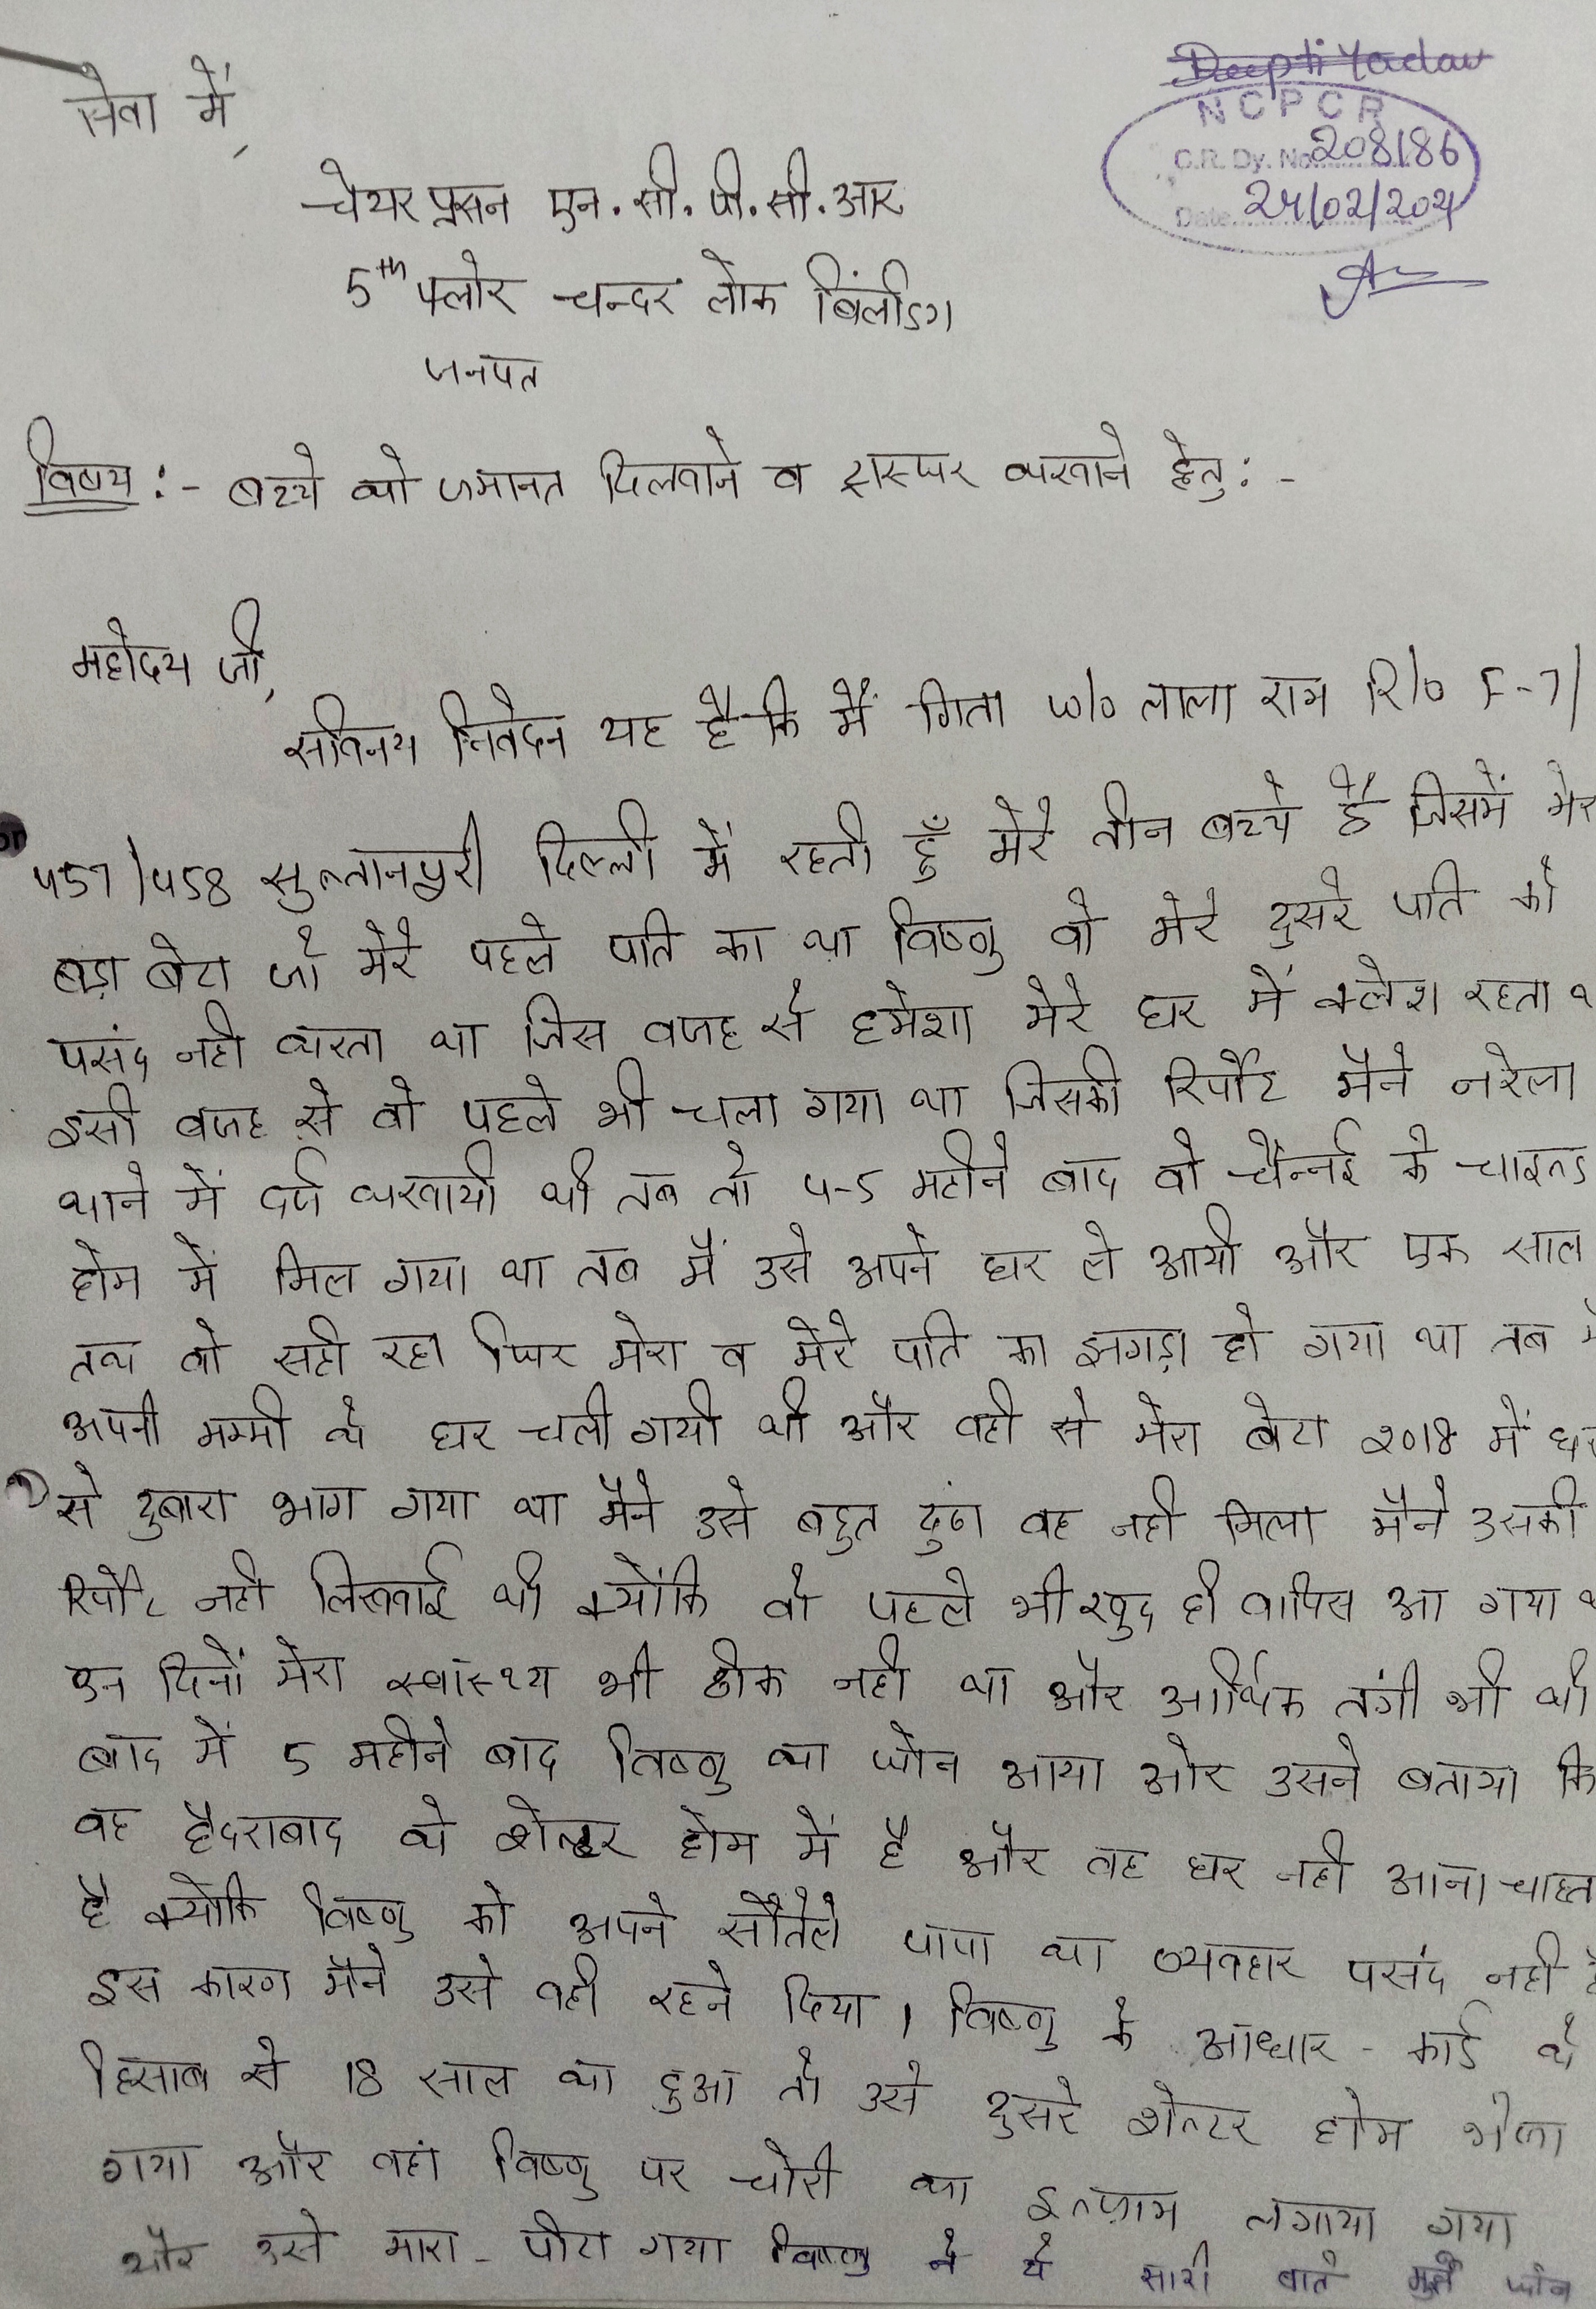 Deepti Yadav
NCPCR
C.R. Dy. No. 208186
Date 24/02/2021
सेवा में,
चेयर प्रसन एन. सी. पी. सी. आर
5th फ्लोर चन्दर लोक बिंल्डिग
जनपत
विषय :- बच्चे को जमानत दिलवाने व ट्रास्फर करवाने हेतु :-
महोदय जी,
सविनय निवेदन यह है कि मैं गिता w/o लाला राम R/o F-7/
457/458 सुल्तानपुरी दिल्ली में रहती हुँ मेरे तीन बच्चे है जिसमें मेरा
बड़ा बेटा जो मेरे पहले पति का था विष्णु वो मेरे दुसरे पति को
पसंद नही करता था जिस वजह से हमेशा मेरे घर में क्लेश रहता था
इसी वजह से वो पहले भी चला गया था जिसकी रिर्पोट मैने नरेला
थाने में दर्ज करवायी थी तब तो 4-5 महीने बाद वो चैन्नई के चाइल्ड
होम में मिल गया था तब मैं उसे अपने घर ले आयी और एक साल
तक वो सही रहा फिर मेरा व मेरे पति का झगड़ा हो गया था तब मैं
अपनी मम्मी के घर चली गयी थी और वही से मेरा बेटा 2018 में घर
से दुबारा भाग गया था मैने उसे बहुत ढुंढा वह नही मिला मैने उसकी
रिर्पोट नही लिखवाई थी क्योंकि वो पहले भी खुद ही वापिस आ गया था
उन दिनों मेरा स्वांस्थ्य भी ठीक नही था और आर्थिक तंगी भी थी
बाद में 5 महीने बाद विष्णु का फोन आया ओर उसने बताया कि
वह हैदराबाद के शेल्टर होम में है और वह घर नही आना चाहता
है क्योकि विष्णु को अपने सौतेले पापा का व्यवहार पसंद नही है
इस कारण मैने उसे वही रहने दिया । विष्णु के आधार - कार्ड के
हिसाब से 18 साल का हुआ तो उसे दुसरे शेल्टर होम भेजा
गया और वहां विष्णु पर चोरी का इल्ज़ाम लगाया गया
और उसे मारा - पीटा गया विष्णु ने ये सारी बाते मुझे फोन